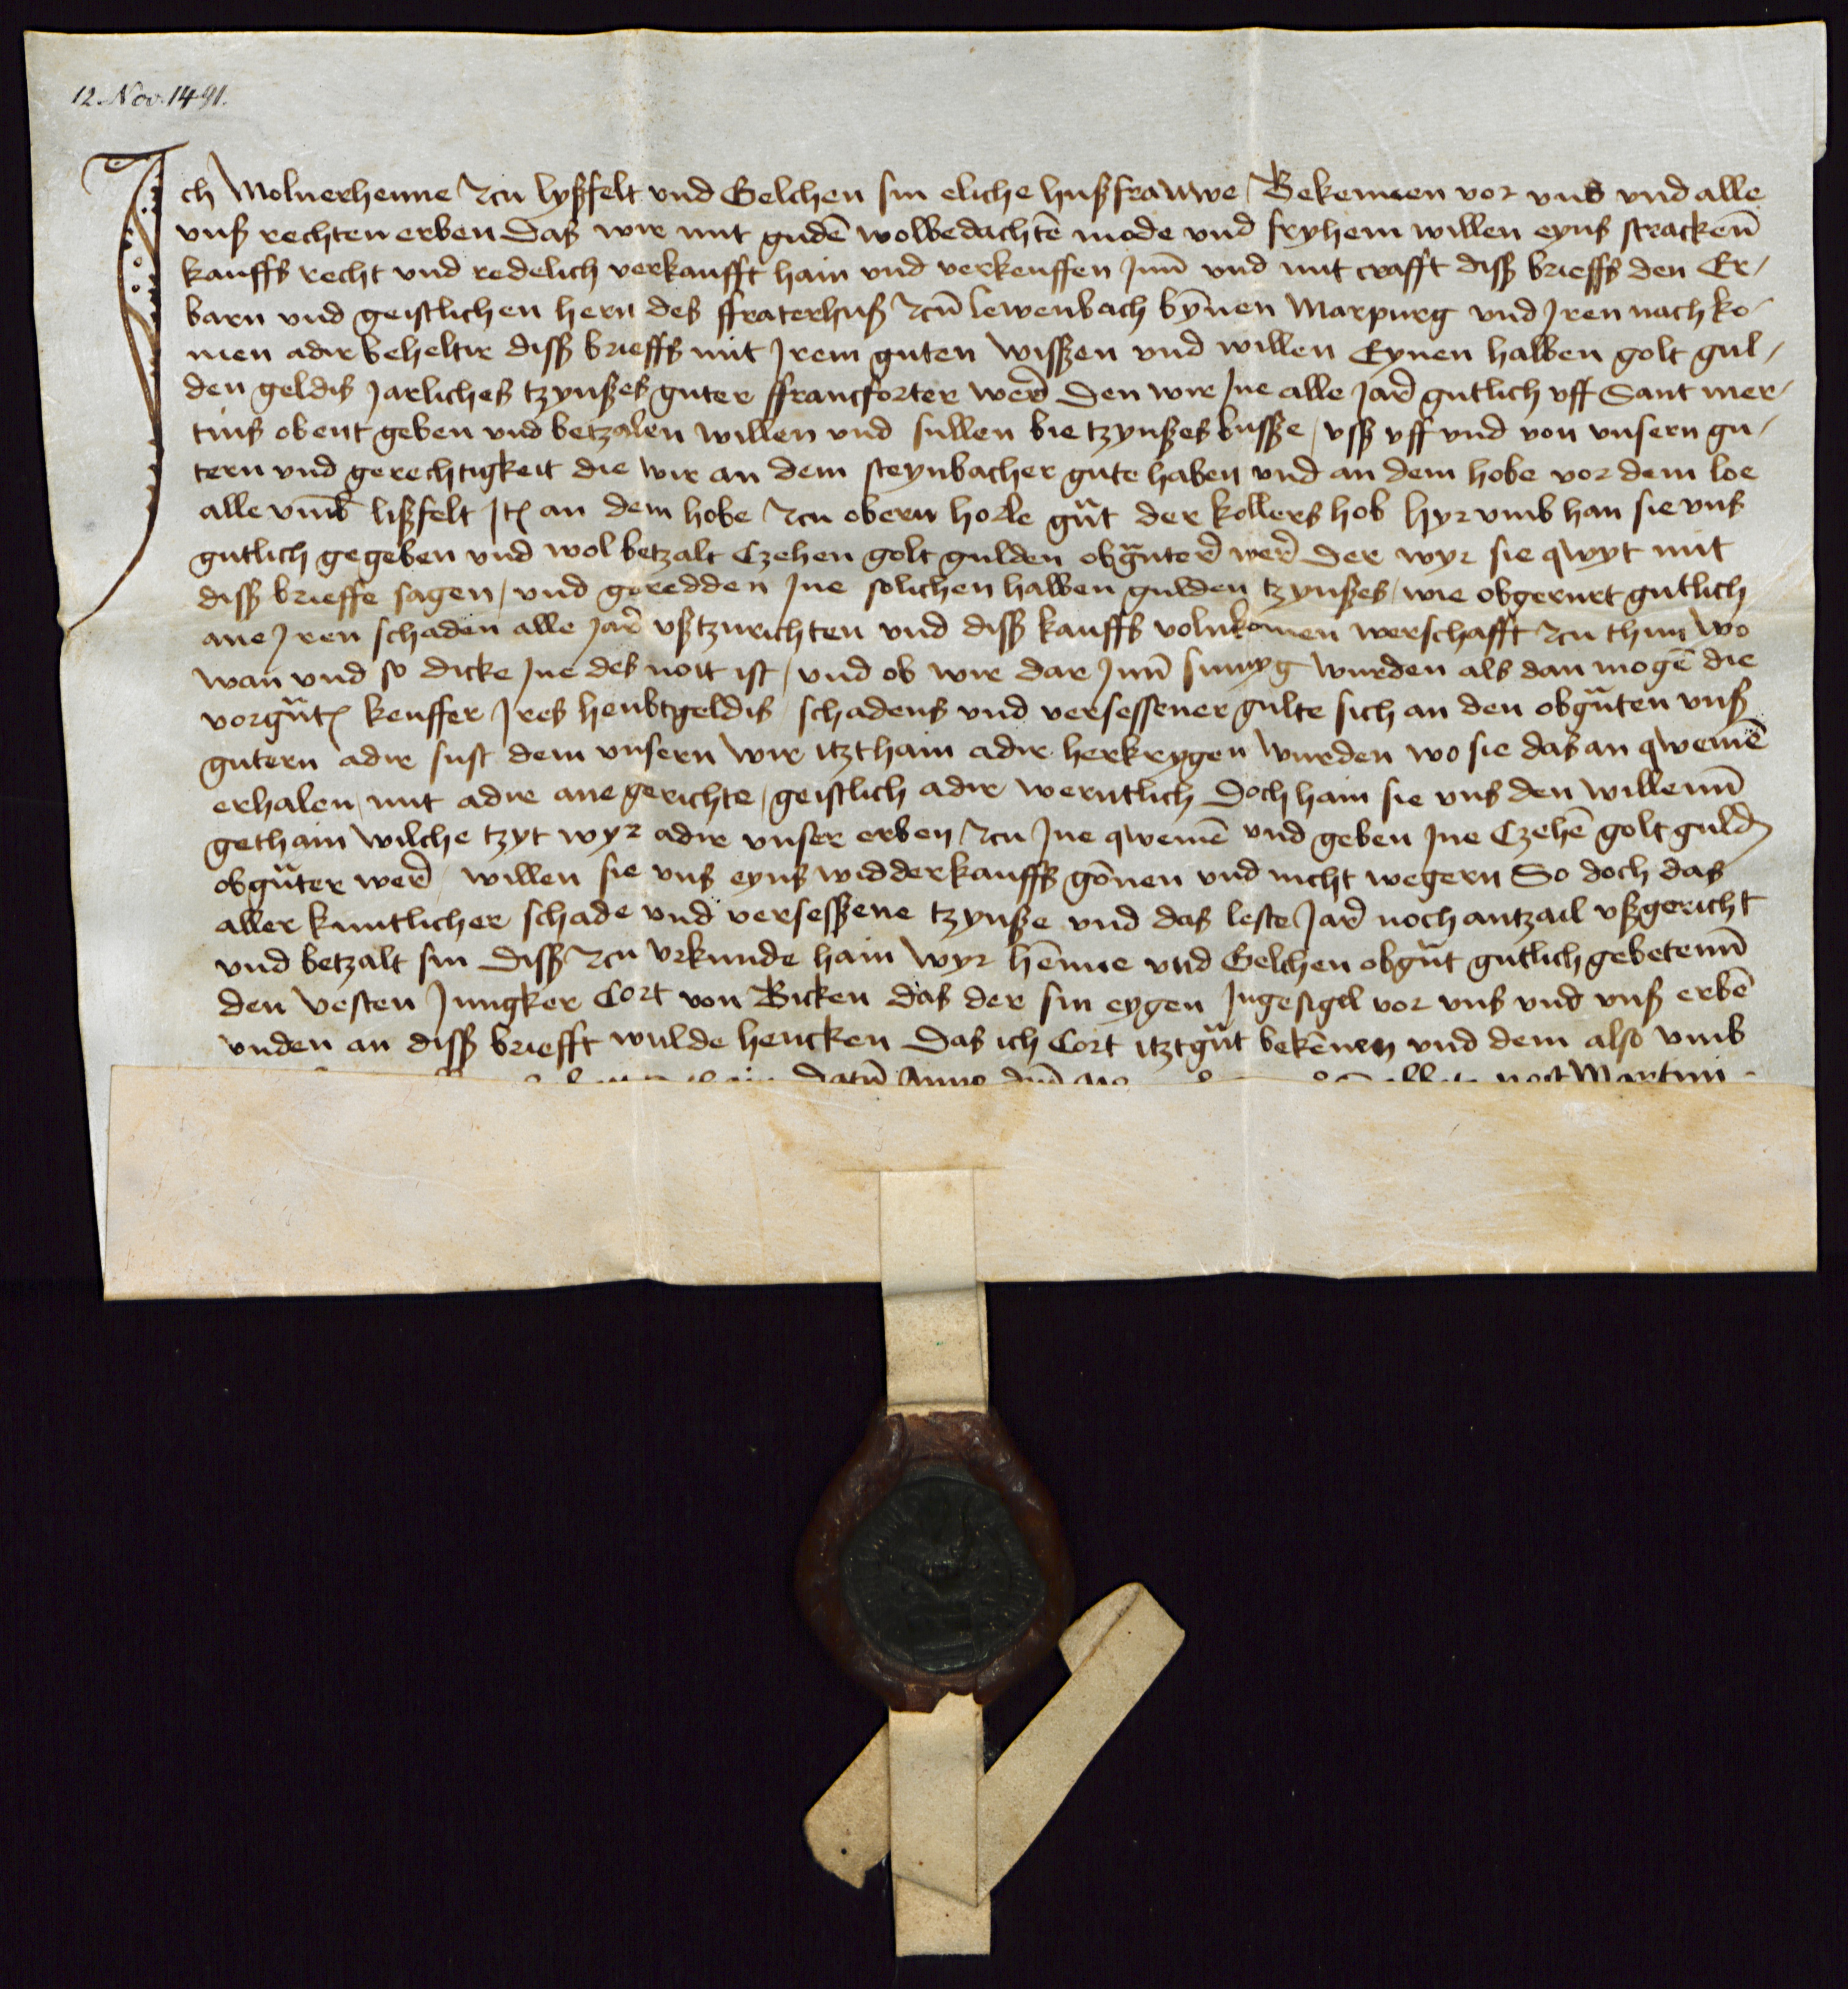 12. Nov. 1491.
Ich Molnerhenne zcu lyßfelt und Gelchen sin eliche hußfrauwe Bekennen vor uns und alle
unß rechten erben Das wir mit gudē wolbedachtē mode und fryhem willen eyns strackeñ
kauffs recht und redelich verkaufft hain und verkeuffen Jnn̄ und mit crafft diss brieffs den Er/
barn und geistlichen hern des ffraterhuß zcū lewenbach bȳnen Marpurg und Jren nachko-
men adir beheltir diss brieffs mit Jrem guten wissen und willen Eynen halben golt gul/
den geldis Jarliches tzynßes guter ffrancforter wer̄ Den wir Jne alle Jar̄ gutlich uff Sant mer/
tins obent geben und betzalen willen und sullen bie tzynßes busse / uss uff und von unsern gu/
tern und gerechtigkeit die wir an dem steynbacher gute haben und an dem hobe vor dem loe
alle um̄b lißfelt Jt̄ an dem hobe zcu obern horle gn̄t der kollers hob hyr umb han sie uns
gutlich gegeben und wol betzalt Czehen golt gulden obgnter̄ wer̄ Der wyr sie qwyt mit
diss brieffe sagen / und geredden Jne solichen halben gulden tzynßes / wie obgerurt gutlich
ane Jren schaden alle Jar̄ ußtzurichten und diss kauffs volnkomen werschafft zcu thun wo
wan und so dicke Jne des noit ist / und ob wir dar Jnn̄ sumyg wurden als dan mogē die
vorgn̄t keuffer Jres heubtgeldis schadens und versessener gulte sich an den obgn̄ten unß
gutern adir sust dem unsern wir itzt hain adir herkrygen wurden wo sie das an qwemē
erhalen / mit adir ane gerichte / geistlich adir werntlich Doch hain sie uns den willenn̄
gethain wilche tzyt wyr adir unser erben zcu Jne qwemē und geben Jne Czehē golt guld
obgn̄ter wer̄ / willen sie uns eyns widderkauffs gōnen und nicht wegern So doch das
aller kuntlicher schade und versessene tzynße und das leste Jar̄ noch antzail ußgericht
und betzalt sin Diss zcu urkunde hain wyr hēnne und Gelchen obgn̄t gutlich gebetenn̄
den vesten Jungker Cort von Bicken das der sin eygen Jngesigel vor uns und unß erbē
unden an diss briefft wulde hencken Das ich Cort itztgn̄t bekēnen und dem also umb
Datū Anno dn̄i post Martini